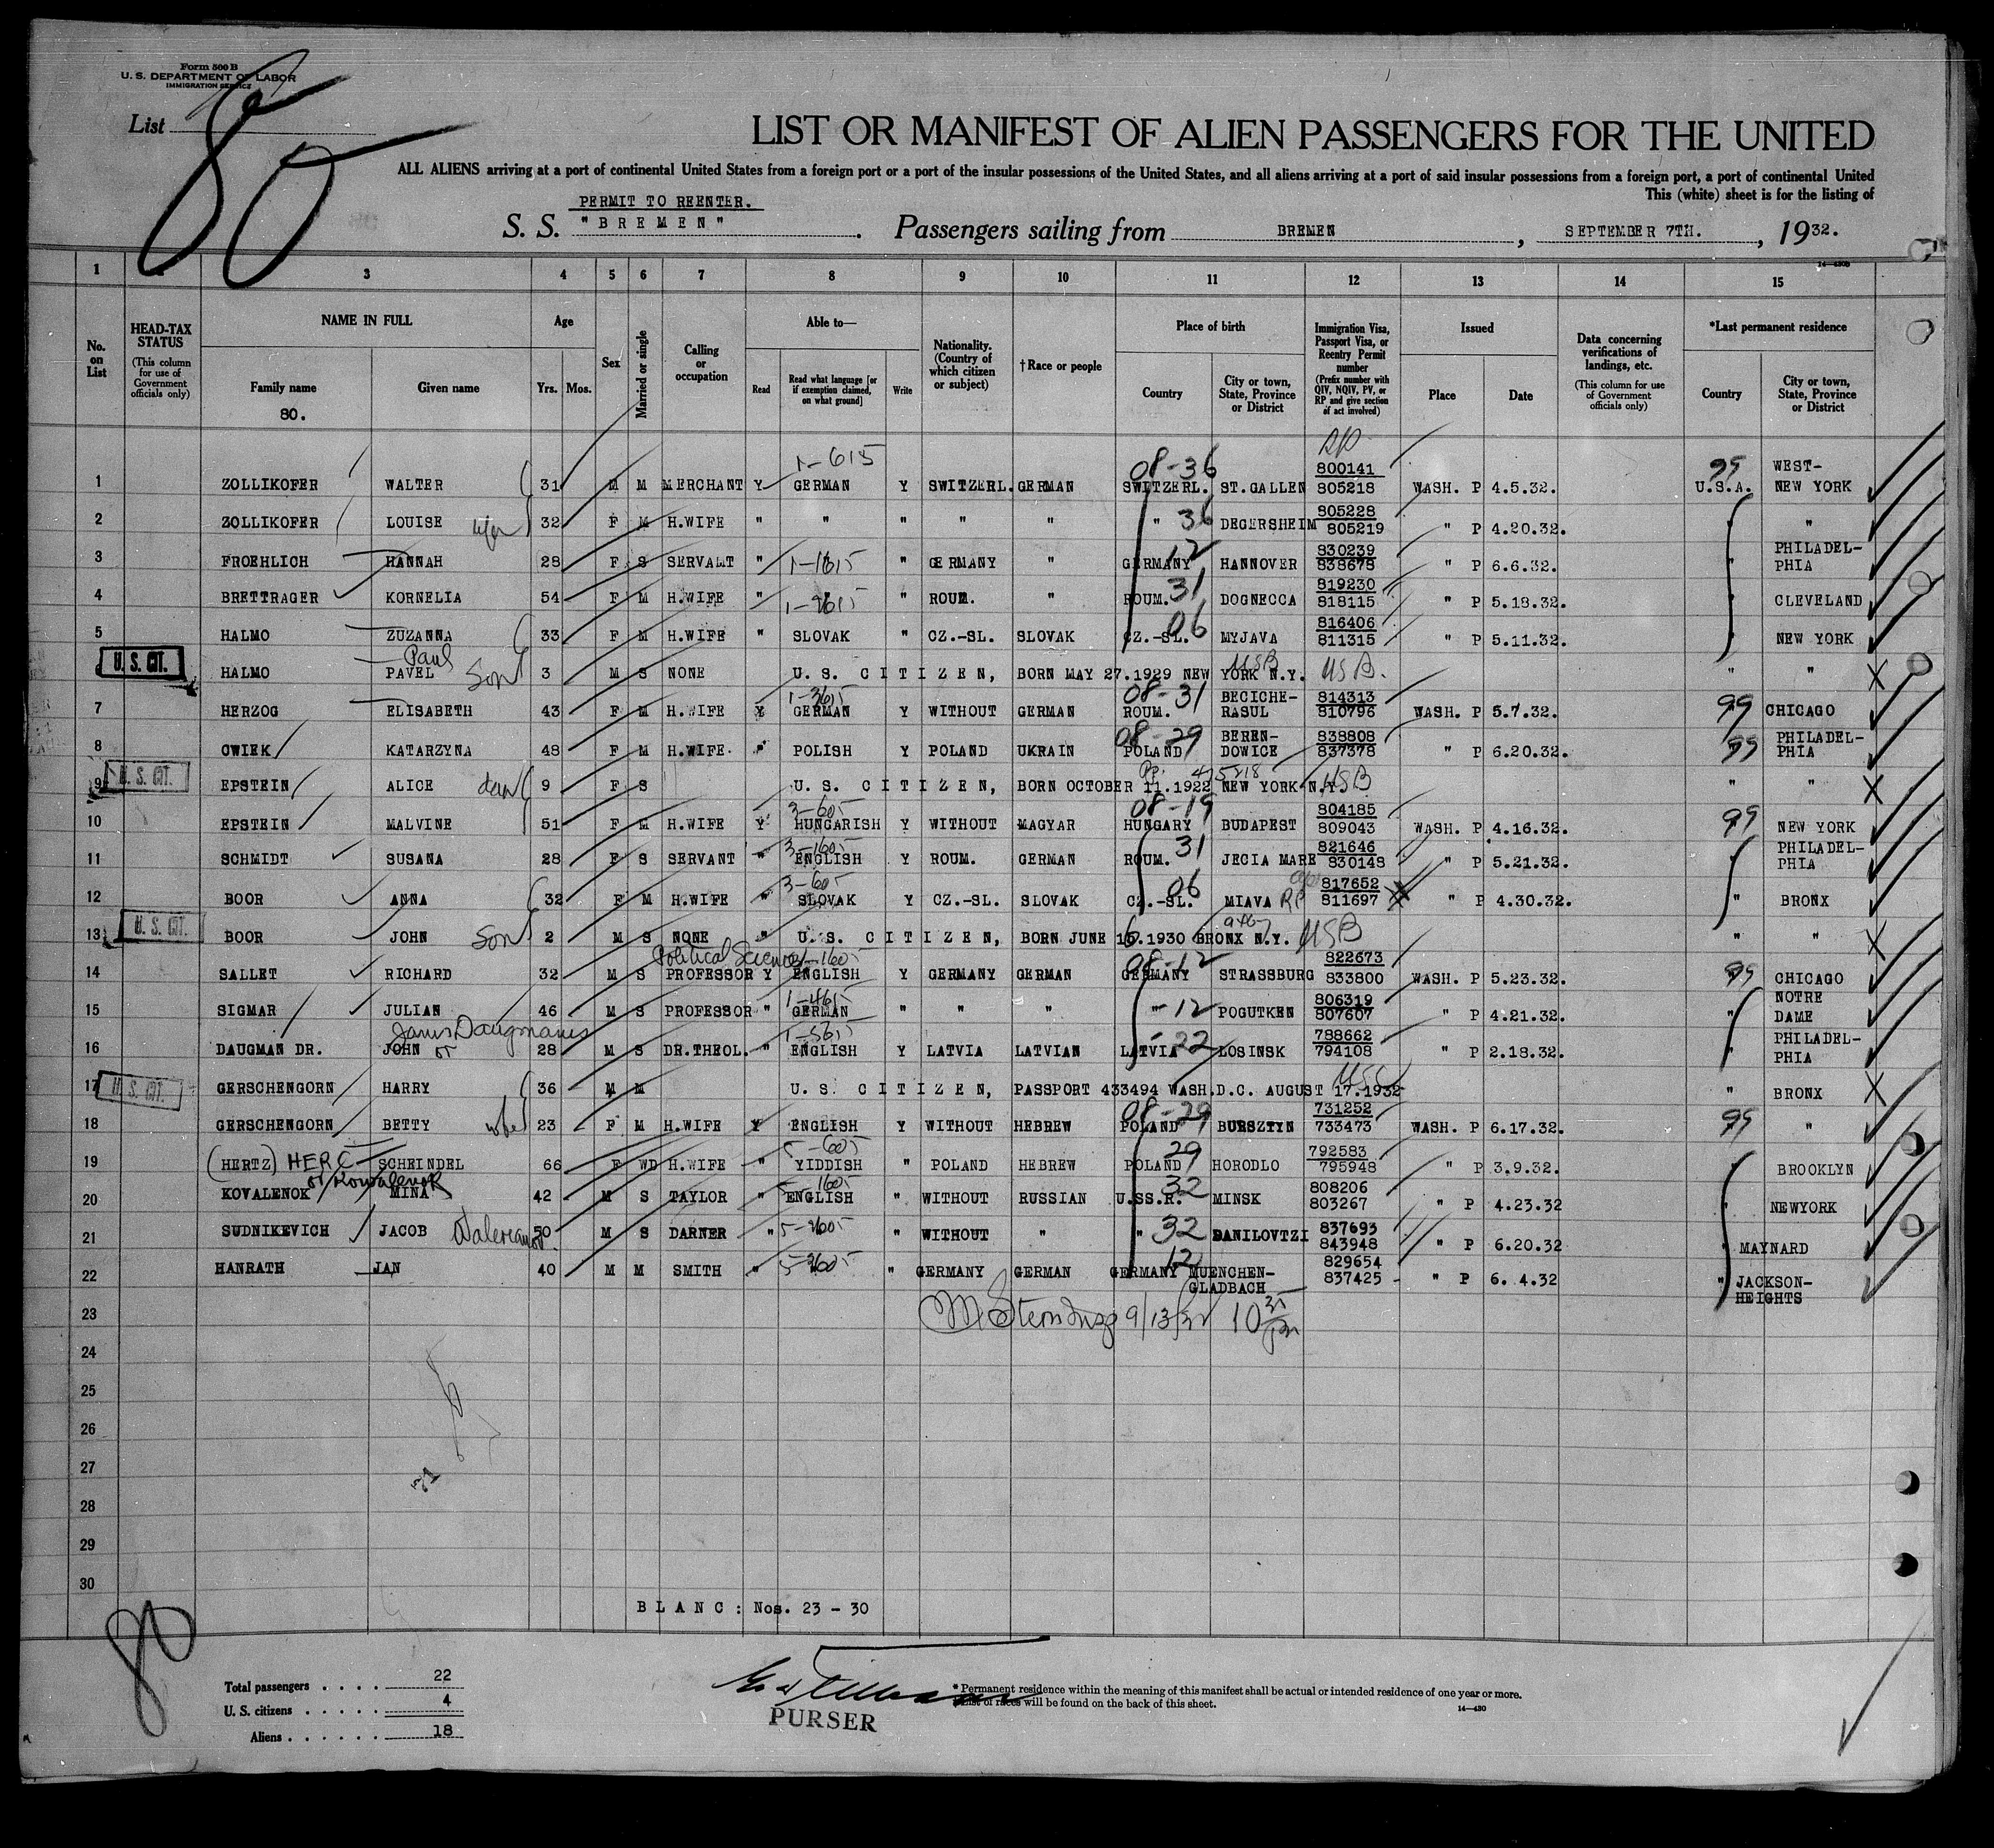 Form 500 B
U. S. DEPARTMENT OF LABOR
IMMIGRATION SERVICE
List
80
LIST OR MANIFEST OF ALIEN PASSENGERS FOR THE UNITED
ALL ALIENS arriving at a port of continental United States from a foreign port or a port of the insular possessions of the United States, and all aliens arriving at a port of said insular possessions from a foreign port, a port of continental United
This (white) sheet is for the listing of
PERMIT TO REENTER.
S. S. "BREMEN". Passengers sailing from BREMEN, SEPTEMBER 7TH., 1932.
14—430b
1 3 4 5 6 7 8 9 10 11 12 13 14 15
No. on List
HEAD-TAX STATUS (This column for use of Government officials only)
NAME IN FULL Family name Given name
80.
Age Yrs. Mos.
Sex
Married or single
Calling or occupation
Able to— Read Read what language [or if exemption claimed, on what ground] Write
Nationality. (Country of which citizen or subject)
†Race or people
Place of birth Country City or town, State, Province or District
Immigration Visa, Passport Visa, or Reentry Permit number (Prefix number with QIV, NQIV, PV, or RP and give section of act involved)
Issued Place Date
Data concerning verifications of landings, etc. (This column for use of Government officials only)
*Last permanent residence Country City or town, State, Province or District
1-615 08-36 RP 800141 99 WEST-
1 ZOLLIKOFER WALTER 31 M M MERCHANT Y GERMAN Y SWITZERL. GERMAN SWITZERL. ST.GALLEN 805218 WASH. P 4.5.32. U.S.A. NEW YORK
805228
2 ZOLLIKOFER LOUISE wife 32 F M H.WIFE " " " " " " 36 DEGERSHEIM 805219 " P 4.20.32. " "
830239 PHILADEL-
3 FROEHLICH HANNAH 28 F S SERVALT " 1-1615 " GERMANY " GERMANY 12 HANNOVER 838678 " P 6.6.32. " PHIA
819230
4 BRETTRAGER KORNELIA 54 F M H.WIFE " 1-2615 " ROUM. " ROUM. 31 DOGNECCA 818115 " P 5.18.32. " CLEVELAND
816406
5 HALMO ZUZANNA 33 F M H.WIFE " SLOVAK " CZ.-SL. SLOVAK CZ.-SL. 06 MYJAVA 811315 " P 5.11.32. " NEW YORK
U. S. CIT. Paul
HALMO PAVEL Son 3 M S NONE U. S. CITIZEN, BORN MAY 27.1929 NEW YORK N.Y. USB USB. " "
1-3615 08-31 BECICHE- 814313
7 HERZOG ELISABETH 43 F M H.WIFE Y GERMAN Y WITHOUT GERMAN ROUM. RASUL 810796 WASH. P 5.7.32. 99 CHICAGO
08-29 BEREN- 838808 PHILADEL-
8 CWIEK KATARZYNA 48 F M H.WIFE. " POLISH Y POLAND UKRAIN POLAND DOWICE 837378 " P 6.20.32. 99 PHIA
U. S. CIT.
9 EPSTEIN ALICE dau 9 F S U. S. CITIZEN, BORN OCTOBER 11.1922 NEW YORK N.Y. USB " "
3-605 08-19 804185
10 EPSTEIN MALVINE 51 F M H.WIFE Y HUNGARISH Y WITHOUT MAGYAR HUNGARY BUDAPEST 809043 WASH. P 4.16.32. 99 NEW YORK
3-1605 821646 PHILADEL-
11 SCHMIDT SUSANA 28 F S SERVANT " ENGLISH Y ROUM. GERMAN ROUM. 31 JECIA MARE 830148 " P 5.21.32. " PHIA
3-605 817652
12 BOOR ANNA 32 F M H.WIFE " SLOVAK Y CZ.-SL. SLOVAK CZ.-SL. 06 MIAVA RP 811697 " P 4.30.32. " BRONX
U. S. CIT.
13 BOOR JOHN Son 2 M S NONE " U. S. CITIZEN, BORN JUNE 15.1930 BRONX N.Y. USB " "
Political Science 1605 08-12 822673
14 SALLET RICHARD 32 M S PROFESSOR Y ENGLISH Y GERMANY GERMAN GERMANY STRASSBURG 833800 WASH. P 5.23.32. 99 CHICAGO
1-4615 806319 NOTRE
15 SIGMAR JULIAN 46 M S PROFESSOR " GERMAN " " " " 12 POGUTKEN 807607 " P 4.21.32. " DAME
Janis Daugmanis 1-5615 788662 PHILADEL-
16 DAUGMAN DR. JOHN or 28 M S DR.THEOL. " ENGLISH Y LATVIA LATVIAN LATVIA 22 LOSINSK 794108 " P 2.18.32. " PHIA
U. S. CIT.
17 GERSCHENGORN HARRY 36 M M U. S. CITIZEN, PASSPORT 433494 WASH.D.C. AUGUST 17.1932 USC " BRONX
08-29 731252
18 GERSCHENGORN BETTY wife 23 F M H.WIFE Y ENGLISH Y WITHOUT HEBREW POLAND BURSZTYN 733473 WASH. P 6.17.32. 99 "
5-605 792583
19 (HERTZ) HERC SCHEINDEL 66 F WD H.WIFE " YIDDISH " POLAND HEBREW POLAND 29 HORODLO 795948 " P 3.9.32. " BROOKLYN
or Kowalenok 5-1605 808206
20 KOVALENOK MINA 42 M S TAYLOR " ENGLISH " WITHOUT RUSSIAN U.SS.R. 32 MINSK 803267 " P 4.23.32 " NEWYORK
837693
21 SUDNIKEVICH JACOB 50 M S DARNER " 5-2605 " WITHOUT " " 32 DANILOVTZI 843948 " P 6.20.32 " MAYNARD
829654
22 HANRATH JAN 40 M M SMITH " 5-3605 " GERMANY GERMAN GERMANY 12 MUENCHEN-GLADBACH 837425 " P 6. 4.32 " JACKSON-HEIGHTS
23 9/13/32 10 35 pm
24
25
26
27
28
29
30
BLANC: Nos. 23 - 30
80
Total passengers . . . . 22
U. S. citizens . . . . . 4
Aliens . . . . . . 18
PURSER
* Permanent residence within the meaning of this manifest shall be actual or intended residence of one year or more.
† List of races will be found on the back of this sheet.
14—430